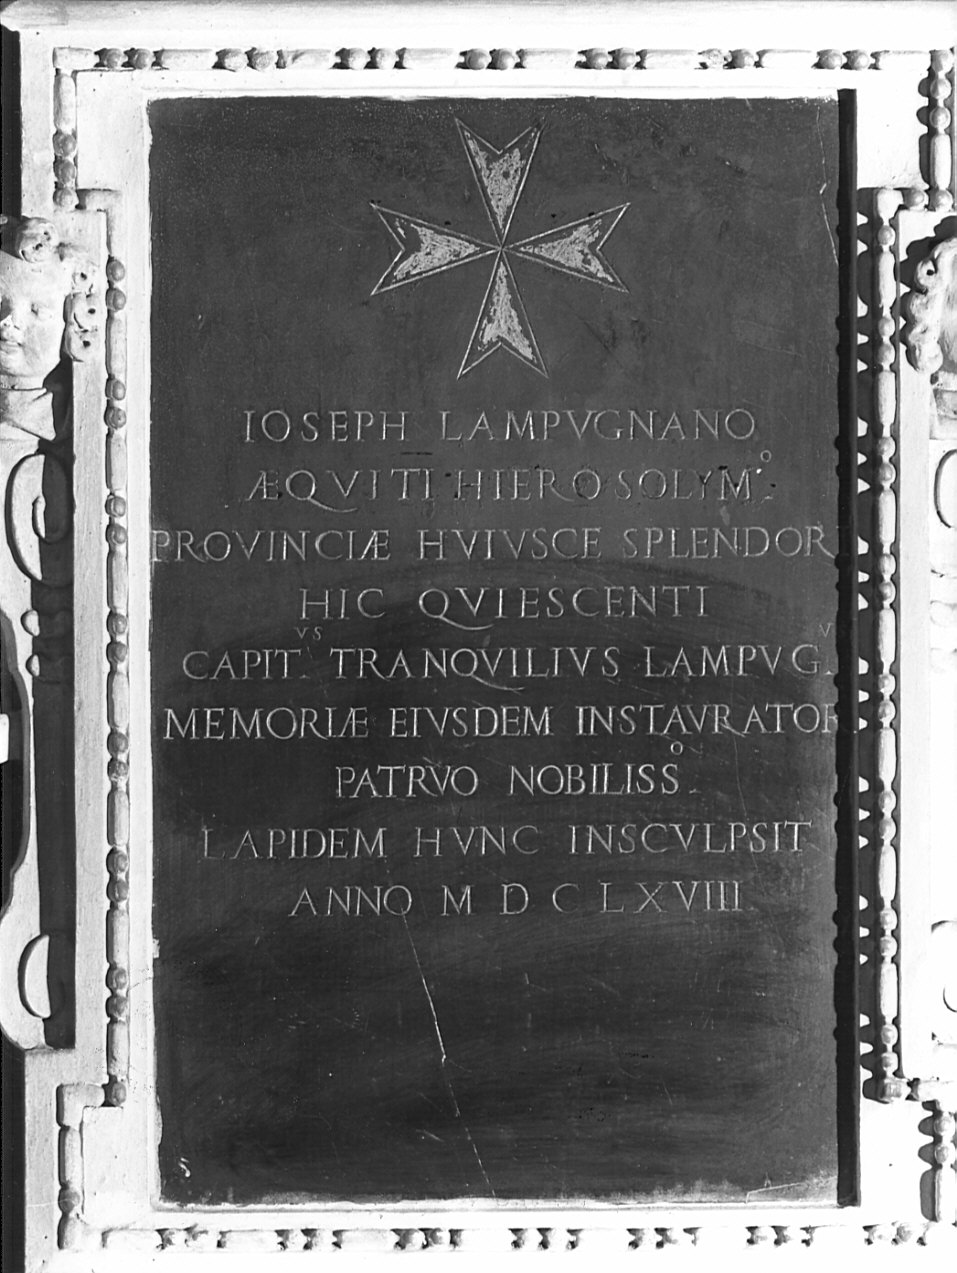 IOSEPH LAMPVGNANO
ÆQVITI HIEROSOLYM.º
PROVINCIÆ HVIVSCE SPLENDORI
HIC QVIESCENTI
CAPIT.VS TRANQVILIVS LAMPVG.V
MEMORIÆ EIVSDEM INSTAVRATOR
PATRVO NOBILISS.º
LAPIDEM HVNC INSCVLPSIT
ANNO M D C LXVIII